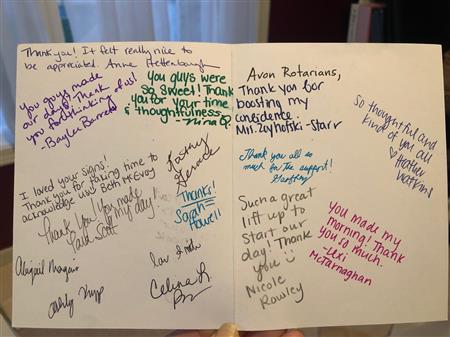 Thank you! It felt really nice to
be appreciated. Anne
You guys made
our day! Thank
you for thinking of us!
-Baylee Barrett
You guys were
so sweet! Thank
you for your time
& thoughtfulness
-Nina P.
I loved your signs!
Thank you for taking time to
acknowledge us! Beth McEvoy
Kathy
Thank you! You made
my day!
Scott
Thanks!
Sarah
Howell
Abigail
Celina R.
Avon Rotarians,
Thank you for
boosting my
confidence.
Mrs. Zoyhofski-Starr
So thoughtful and
kind of you all
♡ Heather
Watkins
Thank you all so
much for the support!
Such a great
lift up to
start our
day! Thank
you ☺
Nicole
Rowley
You made my
morning! Thank
you so much.
-Lexi
McTarnaghan